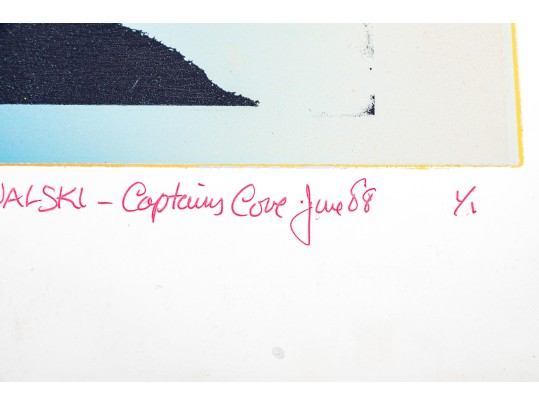 WALSKI – Captains Cove · June 88 1/1